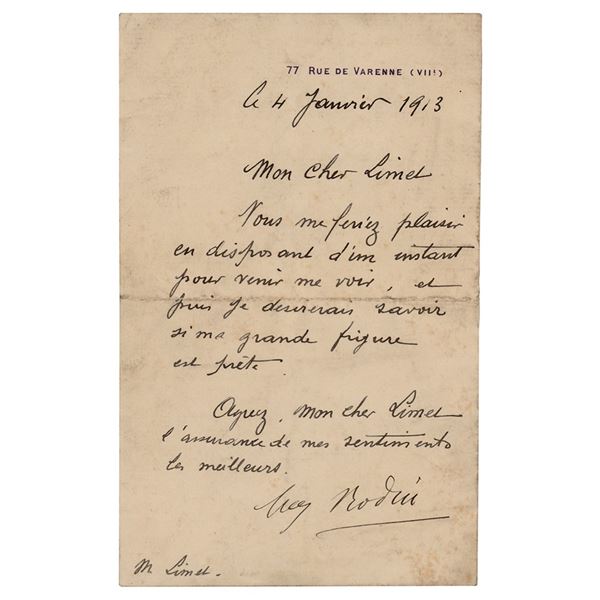 77 RUE DE VARENNE (VIIe)
le 4 Janvier 1913
Mon cher Limet
Vous me feriez plaisir
en disposant d'un instant
pour venir me voir, et
puis je desirerais savoir
si ma grande figure
est prête.
Agréez, mon cher Limet
l'assurance de mes sentiments
les meilleurs.
Aug Rodin
M Limet.